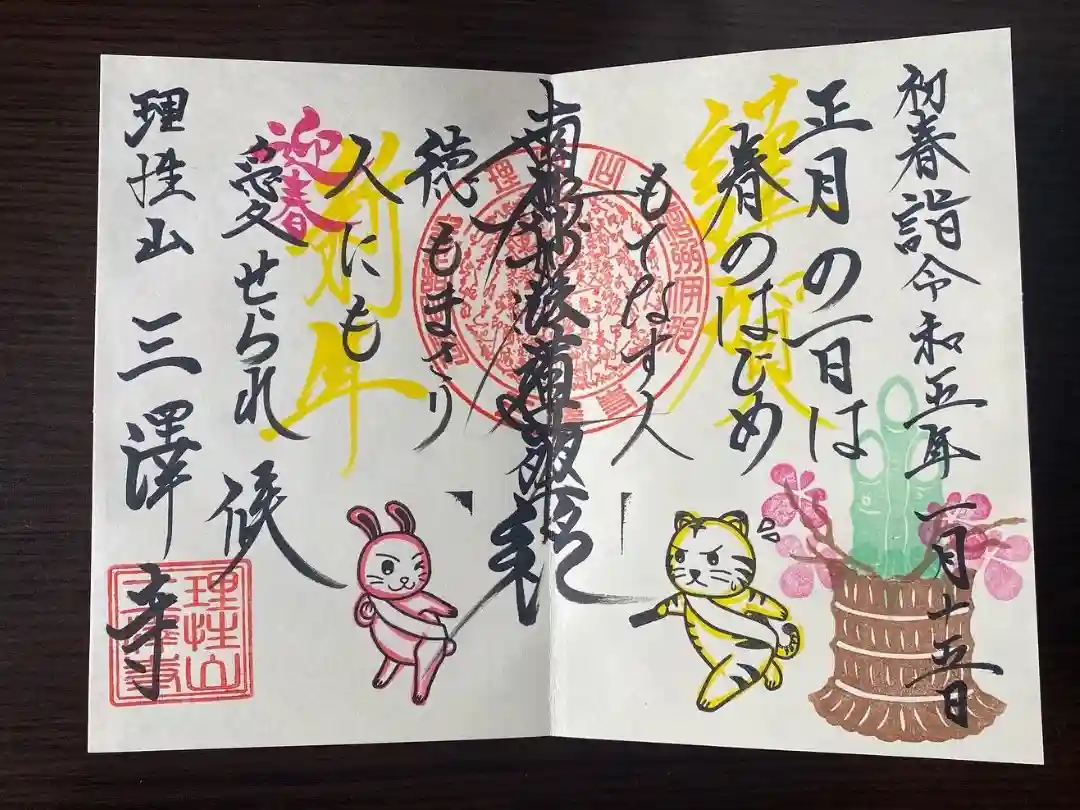 初春詣令和五年一月十五日
正月の一日は
春のはじめ
謹賀
もてなす人
南無妙法蓮華経
徳もまさり
人にも
新年
愛せられ候
迎春
理性山三澤寺